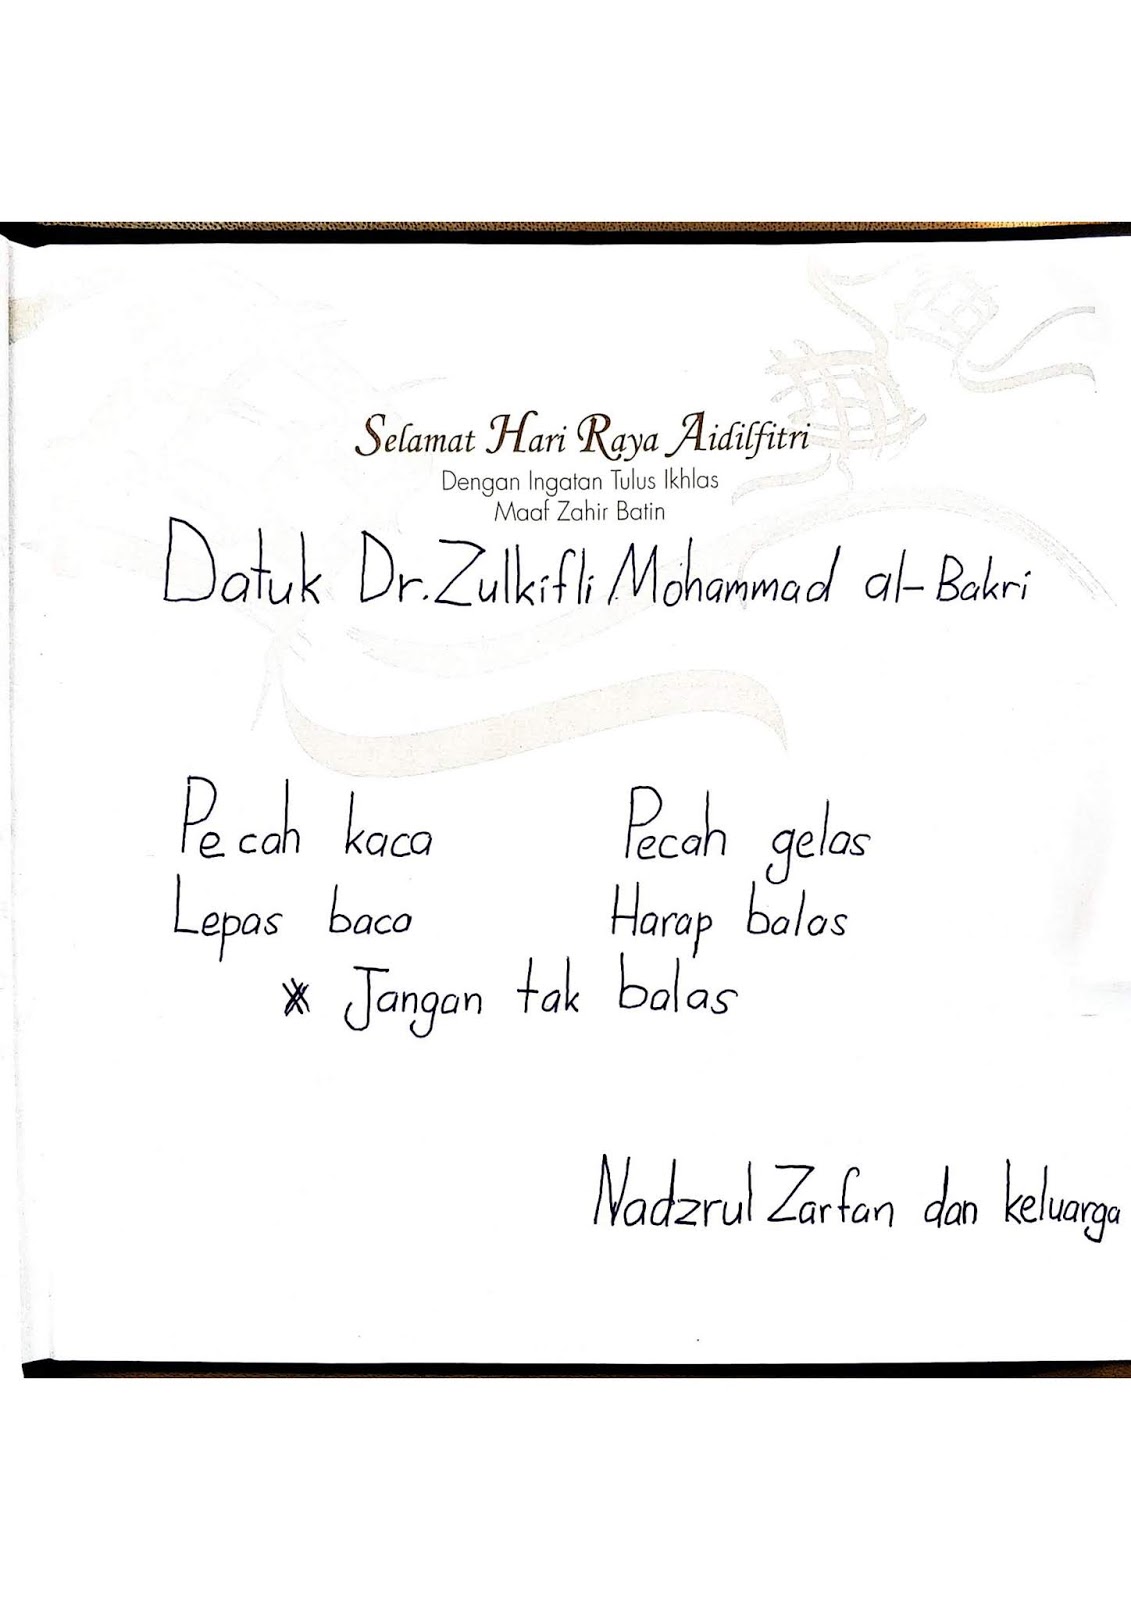 Selamat Hari Raya Aidilfitri
Dengan Ingatan Tulus Ikhlas
Maaf Zahir Batin
Datuk Dr. Zulkifli Mohammad al-Bakri
Pecah kaca Pecah gelas
Lepas baca Harap balas
* Jangan tak balas
Nadzrul Zarfan dan keluarga